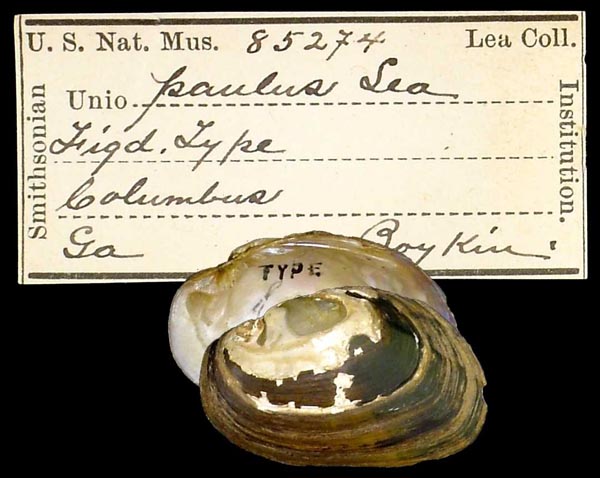 U. S. Nat. Mus. 85274 Lea Coll.
Smithsonian
Unio paulus Lea
Figd. Type
Columbus
Ga Boykin.
Institution.
TYPE